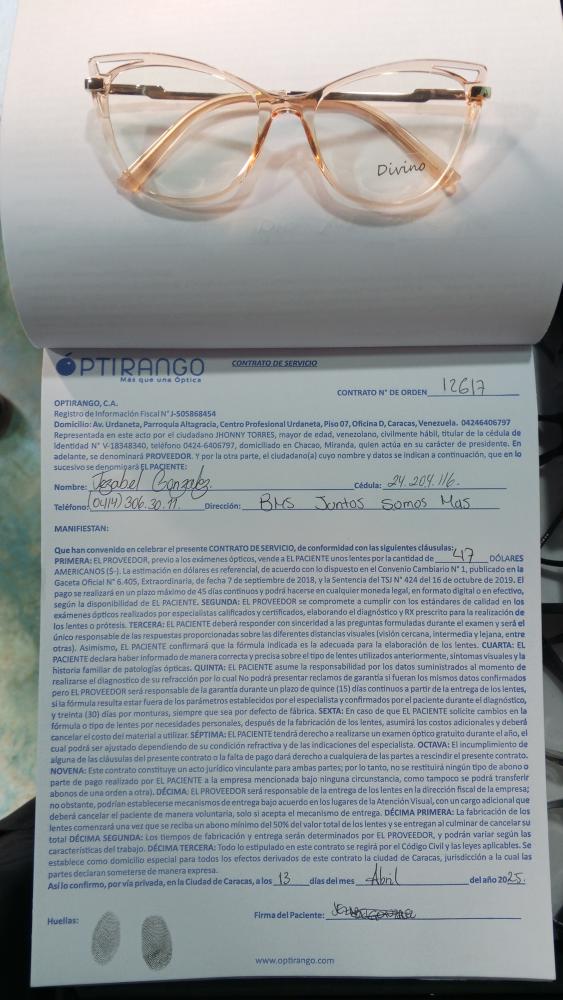 Divino
OPTIRANGO
Más que una Óptica
CONTRATO DE SERVICIO
CONTRATO N° DE ORDEN 12617
OPTIRANGO, C.A.
Registro de Información Fiscal N° J-505868454
Domicilio: Av. Urdaneta, Parroquia Altagracia, Centro Profesional Urdaneta, Piso 07, Oficina D, Caracas, Venezuela. 04246406797
Representada en este acto por el ciudadano JHONNY TORRES, mayor de edad, venezolano, civilmente hábil, titular de la cédula de
Identidad N° V-18348340, teléfono 0424-6406797, domiciliado en Chacao, Miranda, quien actúa en su carácter de presidente. En
adelante, se denominará PROVEEDOR. Y por la otra parte, el ciudadano(a) cuyo nombre y datos se indican a continuación, que en lo
sucesivo se denominará EL PACIENTE:
Nombre: Jezabel Gonzalez. Cédula: 24.204.116.
Teléfono: (0414) 306.30.11. Dirección: BMS Juntos Somos Mas
MANIFIESTAN:
Que han convenido en celebrar el presente CONTRATO DE SERVICIO, de conformidad con las siguientes cláusulas:
PRIMERA: EL PROVEEDOR, previo a los exámenes ópticos, vende a EL PACIENTE unos lentes por la cantidad de 47 DÓLARES
AMERICANOS ($-). La estimación en dólares es referencial, de acuerdo con lo dispuesto en el Convenio Cambiario N° 1, publicado en la
Gaceta Oficial N° 6.405, Extraordinaria, de fecha 7 de septiembre de 2018, y la Sentencia del TSJ N° 424 del 16 de octubre de 2019. El
pago se realizará en un plazo máximo de 45 días continuos y podrá hacerse en cualquier moneda legal, en formato digital o en efectivo,
según la disponibilidad de EL PACIENTE. SEGUNDA: EL PROVEEDOR se compromete a cumplir con los estándares de calidad en los
exámenes ópticos realizados por especialistas calificados y certificados, elaborando el diagnóstico y RX prescrito para la realización de
los lentes o prótesis. TERCERA: EL PACIENTE deberá responder con sinceridad a las preguntas formuladas durante el examen y será el
único responsable de las respuestas proporcionadas sobre las diferentes distancias visuales (visión cercana, intermedia y lejana, entre
otras). Asimismo, EL PACIENTE confirmará que la fórmula indicada es la adecuada para la elaboración de los lentes. CUARTA: EL
PACIENTE declara haber informado de manera correcta y precisa sobre el tipo de lentes utilizados anteriormente, síntomas visuales y la
historia familiar de patologías ópticas. QUINTA: EL PACIENTE asume la responsabilidad por los datos suministrados al momento de
realizarse el diagnostico de su refracción por lo cual No podrá presentar reclamos de garantía si fueran los mismos datos confirmados
pero EL PROVEEDOR será responsable de la garantía durante un plazo de quince (15) días continuos a partir de la entrega de los lentes,
si la fórmula resulta estar fuera de los parámetros establecidos por el especialista y confirmados por el paciente durante el diagnóstico,
y treinta (30) días por monturas, siempre que sea por defecto de fábrica. SEXTA: En caso de que EL PACIENTE solicite cambios en la
fórmula o tipo de lentes por necesidades personales, después de la fabricación de los lentes, asumirá los costos adicionales y deberá
cancelar el costo del material a utilizar. SÉPTIMA: EL PACIENTE tendrá derecho a realizarse un exámen óptico gratuito durante el año, el
cual podrá ser ajustado dependiendo de su condición refractiva y de las indicaciones del especialista. OCTAVA: El incumplimiento de
alguna de las cláusulas del presente contrato o la falta de pago dará derecho a cualquiera de las partes a rescindir el presente contrato.
NOVENA: Este contrato constituye un acto jurídico vinculante para ambas partes; por lo tanto, no se restituirá ningún tipo de abono o
parte de pago realizado por EL PACIENTE a la empresa mencionada bajo ninguna circunstancia, como tampoco se podrá transferir
abonos de una orden a otra). DÉCIMA: EL PROVEEDOR será responsable de la entrega de los lentes en la dirección fiscal de la empresa;
no obstante, podrían establecerse mecanismos de entrega bajo acuerdo en los lugares de la Atención Visual, con un cargo adicional que
deberá cancelar el paciente de manera voluntaria, solo si acepta el mecanismo de entrega. DÉCIMA PRIMERA: La fabricación de los
lentes comenzará una vez que se reciba un abono mínimo del 50% del valor total de los lentes y se entregan al culminar de cancelar su
total DÉCIMA SEGUNDA: Los tiempos de fabricación y entrega serán determinados por EL PROVEEDOR, y podrán variar según las
características del trabajo. DÉCIMA TERCERA: Todo lo estipulado en este contrato se regirá por el Código Civil y las leyes aplicables. Se
establece como domicilio especial para todos los efectos derivados de este contrato la ciudad de Caracas, jurisdicción a la cual las
partes declaran someterse de manera expresa.
Así lo confirmo, por vía privada, en la Ciudad de Caracas, a los 13 días del mes Abril del año 2025.
Huellas: Firma del Paciente:
www.optirango.com